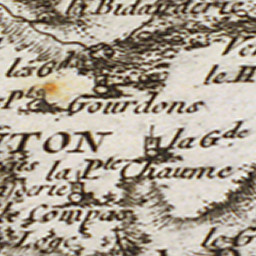 la Bidauderie
la Gde
le
Pte Gourdons
TON la Gde
la Pte Chaume
le Compas
Loge
le G